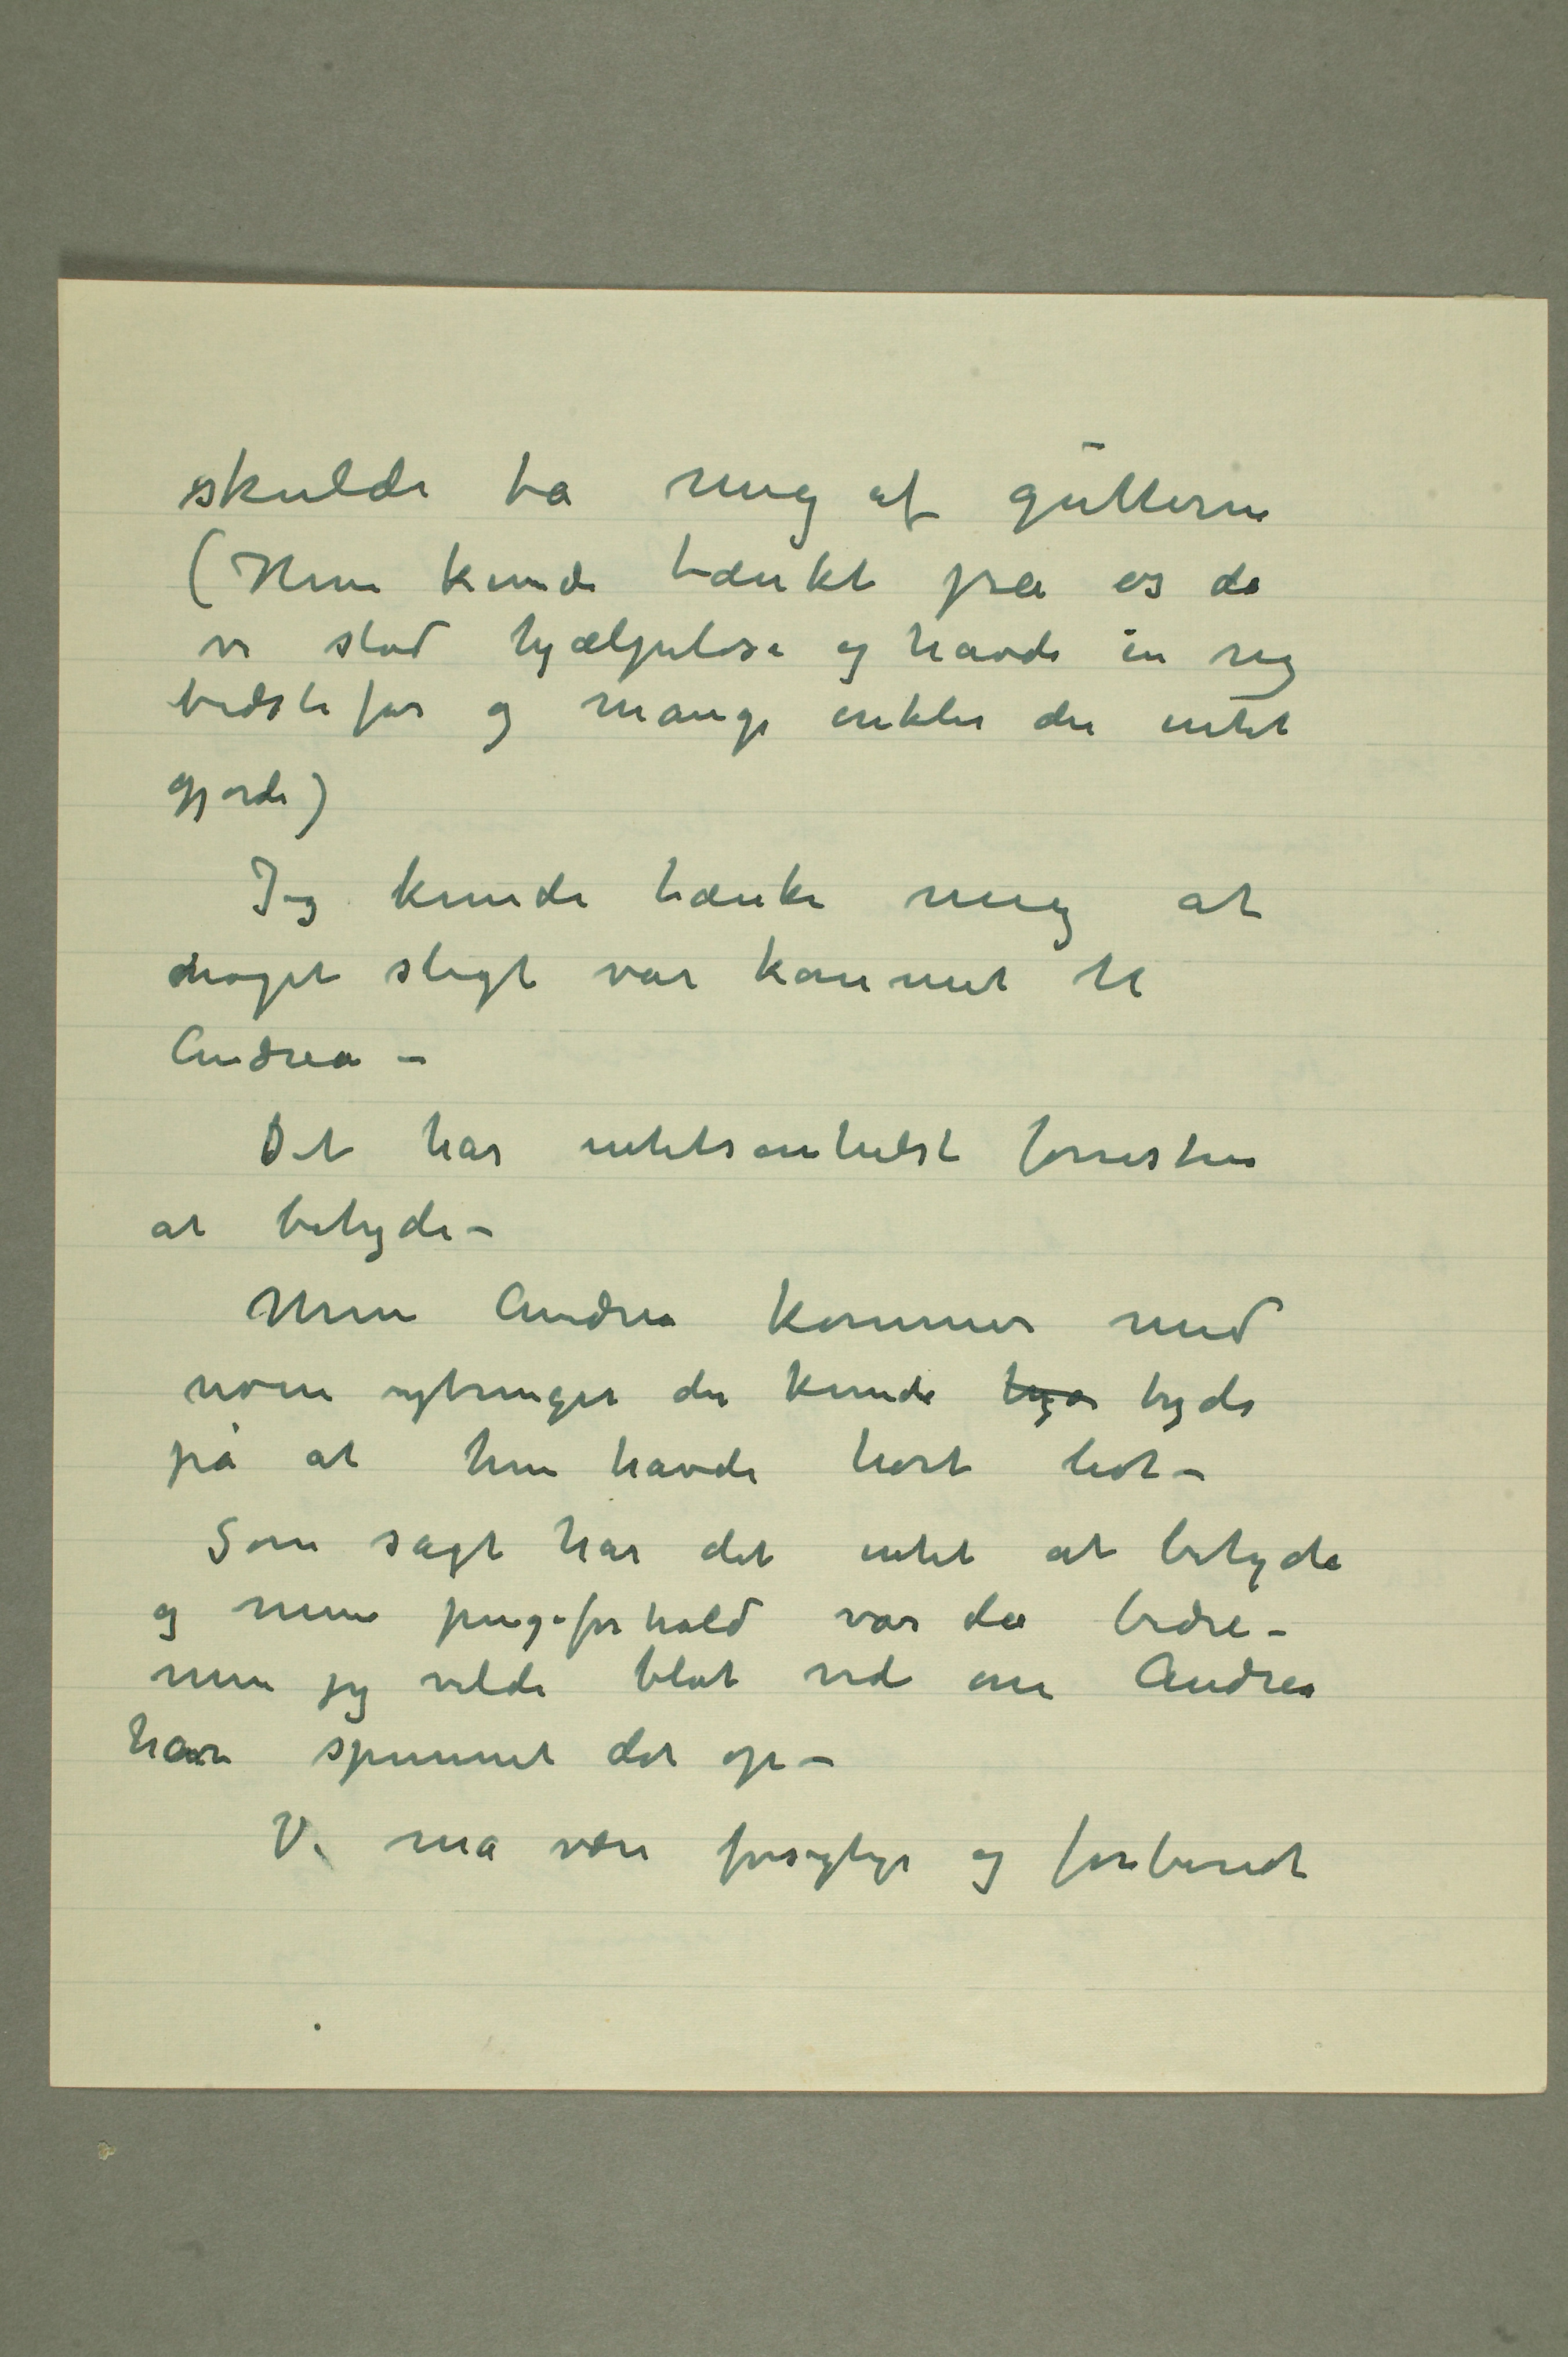 skulde ta mig af gutterne
(Hun kunde tænkt paa os da
vi stod hjælpeløse og havde en rig
bedstefar og mange onkler der intet
gjorde)
Jeg kunde tænke mig at
noget sligt var kommet til
Andrea –
Det har intetsomhelst forresten
at betyde –
Men Andrea kommer med
noen ytringer der kunde tyde
på at hun havde hørt det –
Som sagt har det intet at betyde
og mine pengeforhold var da bedre –
men jeg vilde blot vide om Andrea
har spunnet det op –
Vi må være forsigtige og forberedt